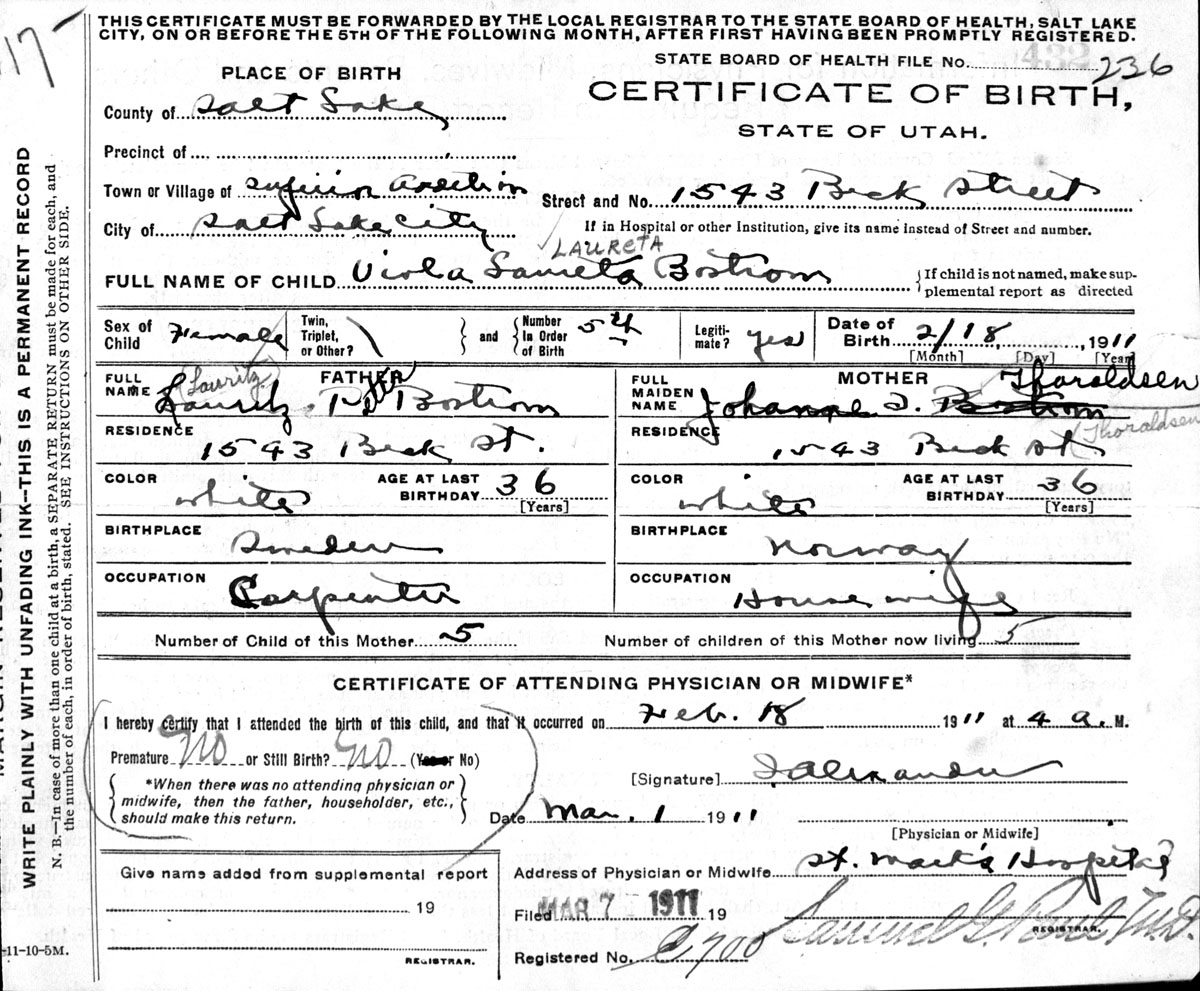 THIS CERTIFICATE MUST BE FORWARDED BY THE LOCAL REGISTRAR TO THE STATE BOARD OF HEALTH, SALT LAKE
CITY, ON OR BEFORE THE 5TH OF THE FOLLOWING MONTH, AFTER FIRST HAVING BEEN PROMPTLY REGISTERED.
117
STATE BOARD OF HEALTH FILE No. 432 236
PLACE OF BIRTH
CERTIFICATE OF BIRTH,
STATE OF UTAH.
County of Salt Lake
Precinct of
Town or Village of Addition
Street and No. 1543 Beck Street
City of Salt Lake City
If in Hospital or other Institution, give its name instead of Street and number.
LAURETA
FULL NAME OF CHILD Viola Laureta Bostrom
{If child is not named, make sup-
plemental report as directed
Sex of Child Female
Twin, Triplet, or Other?
and
Number In Order of Birth 5th
Legiti-mate? yes
Date of Birth 2/18, 1911
[Month] [Day] [Year]
FATHER
FULL NAME Lauritz Bostrom
Lauritz
RESIDENCE 1543 Beck St.
COLOR White
AGE AT LAST BIRTHDAY 36
[Years]
BIRTHPLACE Sweden
OCCUPATION Carpenter
MOTHER
Thoraldsen
FULL MAIDEN NAME Johanne Bostrom
Thoraldsen
RESIDENCE 1543 Beck St
COLOR White
AGE AT LAST BIRTHDAY 36
[Years]
BIRTHPLACE Norway
OCCUPATION Housewife
Number of Child of this Mother 5
Number of children of this Mother now living 5
CERTIFICATE OF ATTENDING PHYSICIAN OR MIDWIFE*
I hereby certify that I attended the birth of this child, and that it occurred on Feb. 18 1911 at 4 a. M.
Premature No or Still Birth? No (Yes or No)
*When there was no attending physician or
midwife, then the father, householder, etc.,
should make this return.
[Signature] Alexander
Date Mar. 1 1911
[Physician or Midwife]
Address of Physician or Midwife St. Mark's Hospital
Give name added from supplemental report
19
REGISTRAR.
Filed MAR 7 1911 19
Samuel G. Paul M.D.
REGISTRAR.
Registered No. 700
-11-10-5M.
WRITE PLAINLY WITH UNFADING INK--THIS IS A PERMANENT RECORD
N. B.—In case of more than one child at a birth, a SEPARATE RETURN must be made for each, and
the number of each, in order of birth, stated. SEE INSTRUCTIONS ON OTHER SIDE.